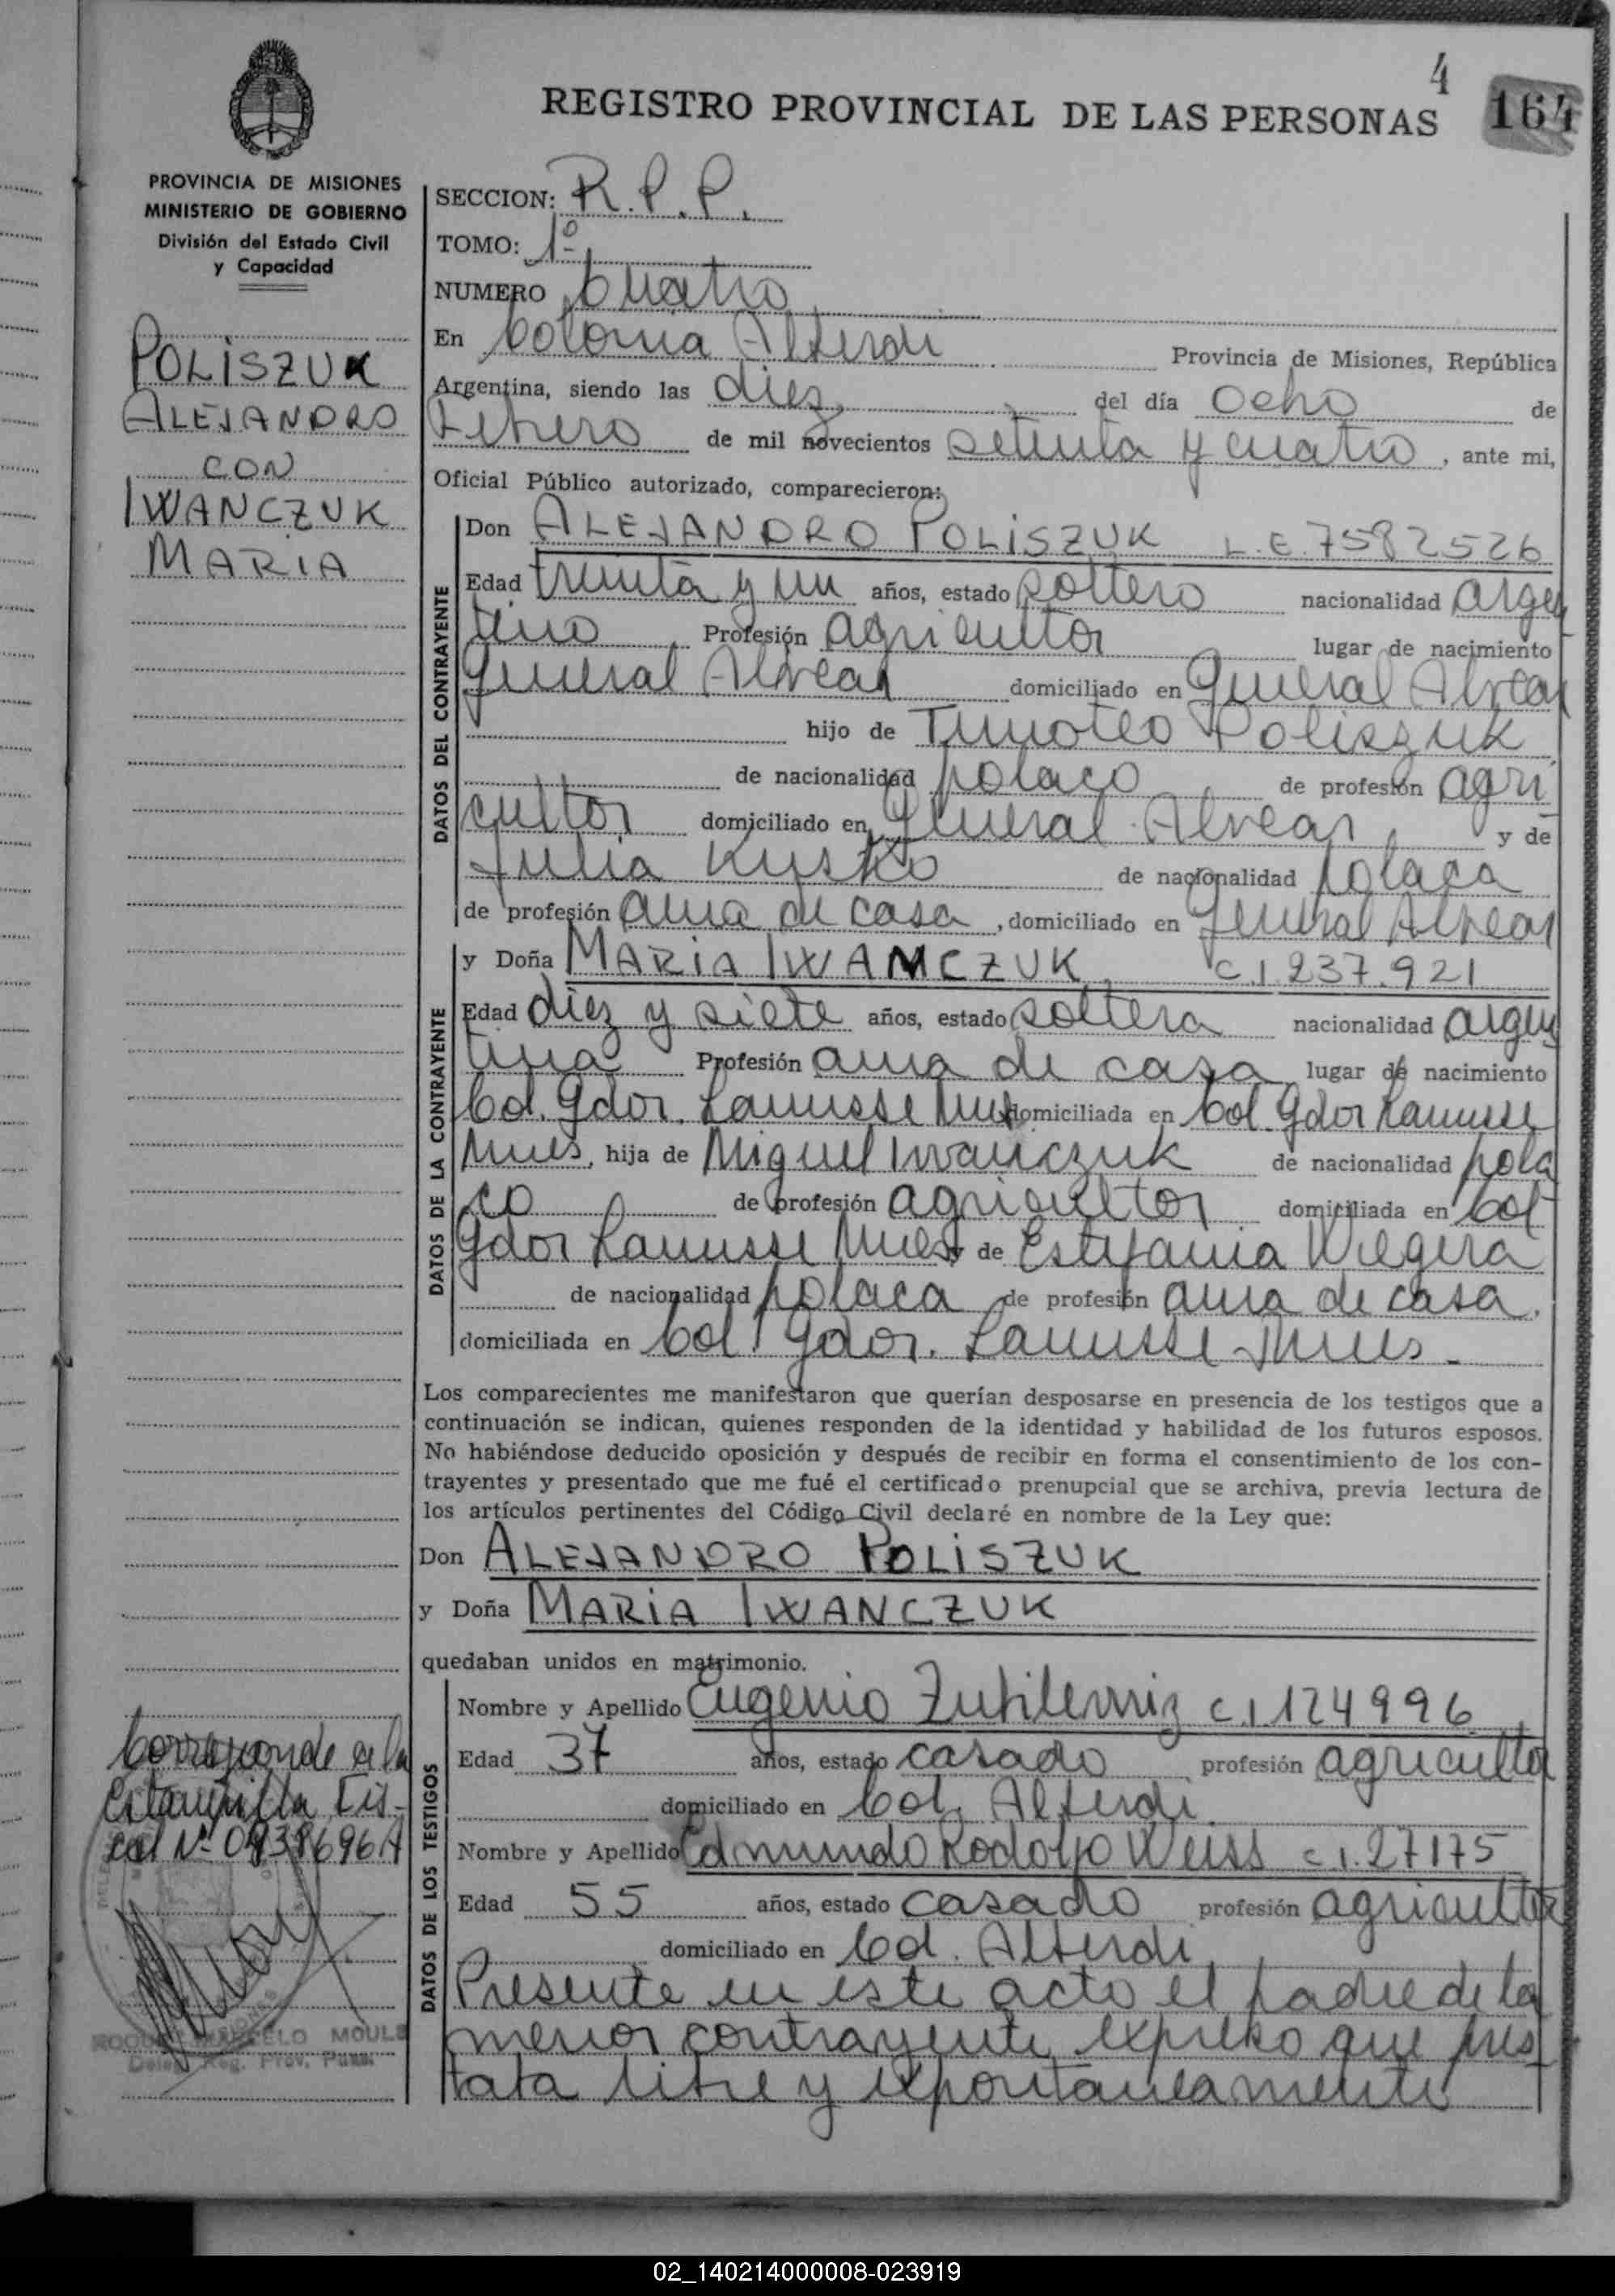 4
164
REGISTRO PROVINCIAL DE LAS PERSONAS
PROVINCIA DE MISIONES
MINISTERIO DE GOBIERNO
División del Estado Civil
y Capacidad
POLISZUK
ALEJANDRO
CON
IWANCZUK
MARIA
SECCION: R.P.P.
TOMO: 1º
NUMERO Cuatro
En Colonia Alberdi Provincia de Misiones, República
Argentina, siendo las diez del día Ocho de
Febrero de mil novecientos setenta y cuatro, ante mi,
Oficial Público autorizado, comparecieron:
DATOS DEL CONTRAYENTE
Don ALEJANDRO POLISZUK L.E. 7582526
Edad treinta y un años, estado soltero nacionalidad argen
tino Profesión agricultor lugar de nacimiento
General Alvear domiciliado en General Alvear
hijo de Timoteo Poliszuk
de nacionalidad polaco de profesión agri
cultor domiciliado en General Alvear, y de
Julia Kysko de nacionalidad polaca
de profesión ama de casa, domiciliado en General Alvear
DATOS DE LA CONTRAYENTE
y Doña MARIA IWANCZUK C.I. 237.921
Edad diez y siete años, estado soltera nacionalidad argen
tina Profesión ama de casa lugar de nacimiento
Col. Gdor. Lanusse Mnes domiciliada en Col. Gdor Lanusse
Mnes, hija de Miguel Iwanczuk de nacionalidad pola
co de profesión agricultor domiciliada en Col
Gdor Lanusse Mnes y de Estefania Wegera
de nacionalidad polaca de profesión ama de casa,
domiciliada en Col Gdor. Lanusse Mnes.
Los comparecientes me manifestaron que querían desposarse en presencia de los testigos que a
continuación se indican, quienes responden de la identidad y habilidad de los futuros esposos.
No habiéndose deducido oposición y después de recibir en forma el consentimiento de los con-
trayentes y presentado que me fué el certificado prenupcial que se archiva, previa lectura de
los artículos pertinentes del Código Civil declaré en nombre de la Ley que:
Don ALEJANDRO POLISZUK
y Doña MARIA IWANCZUK
quedaban unidos en matrimonio.
DATOS DE LOS TESTIGOS
Nombre y Apellido Eugenio C.I 124996
Edad 37 años, estado casado profesión agricultor
domiciliado en Col. Alberdi
Nombre y Apellido Edmundo Rodolfo Weiss C.I. 27175
Edad 55 años, estado casado profesión agricultor
domiciliado en Col. Alberdi
Presente en este acto el padre de la
menor contrayente expreso que pres
taba libre y expontaneamente
Corresponde a la
Estampilla Fis-
cal Nº
MARCELO MOULE
Deleg. Reg. Prov.
02_140214000008-023919